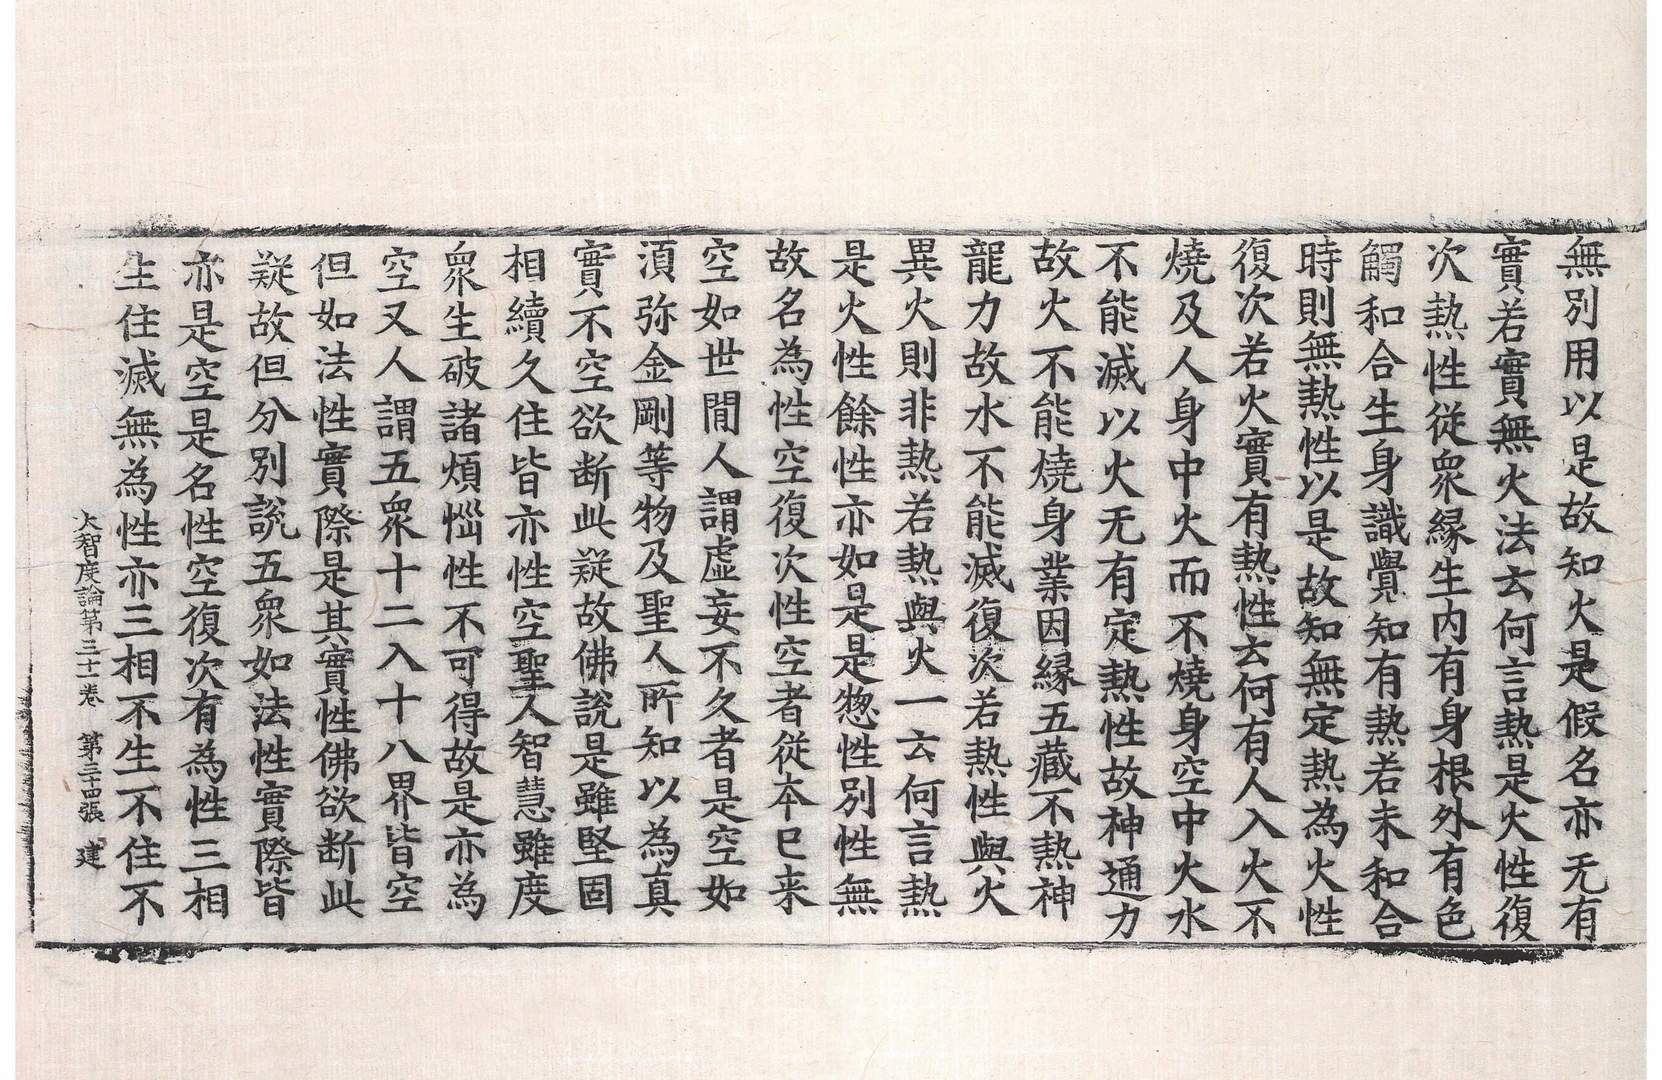 無別用以是故知火是假名亦无有
實若實無火法去何言熱是火性復
次熱性從衆緣生内有身根外有色
觸和合生身識覺知有熱若未和合
時則無熱性以是故知無定熱為火性
復次若火實有熱性去何有人入火不
燒及人身中火而不燒身空中火水
不能滅以火无有定熱性故神通力
故火不能燒身業因緣五藏不熱神
龍力故水不能滅復次若熱性與火
異火則非熱若熱與火一云何言熱
是火性餘性亦如是是惣性別性無
故名為性空復次性空者從本已来
空如世間人謂虛妄不久者是空如
湏弥金剛等物及聖人所知以為真
實不空欲断此疑故佛說是雖堅固
相續久住皆亦性空聖人智慧雖度
衆生破諸煩惱性不可得故是亦為
空又人謂五衆十二入十八界皆空
但如法性實際是其實性佛欲断此
疑故但分別說五衆如法性實際皆
亦是空是名性空復次有為性三相
生住滅無為性亦三相不生不住不
大智度論第三十一卷　第三十四張　建